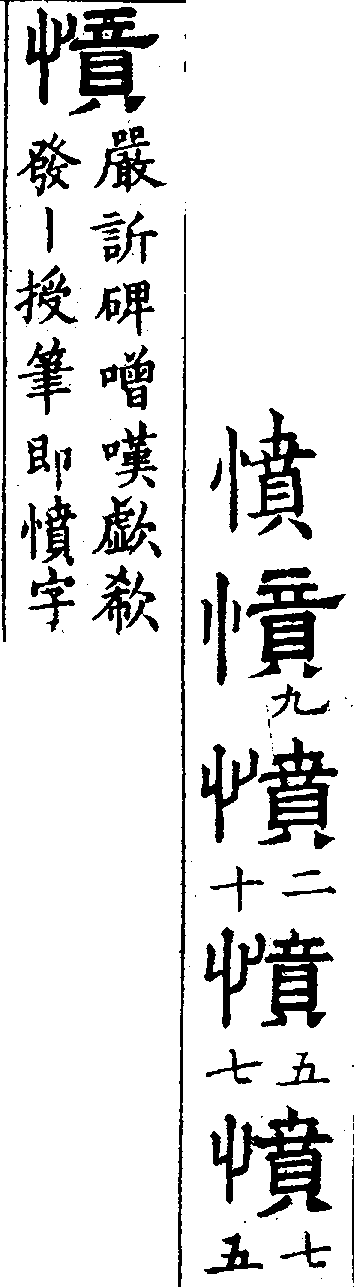 憤
憤
九
憤
二十
憤
五七
憤
七五
憤
嚴訢碑噌嘆歔欷
發丨授筆即憤字